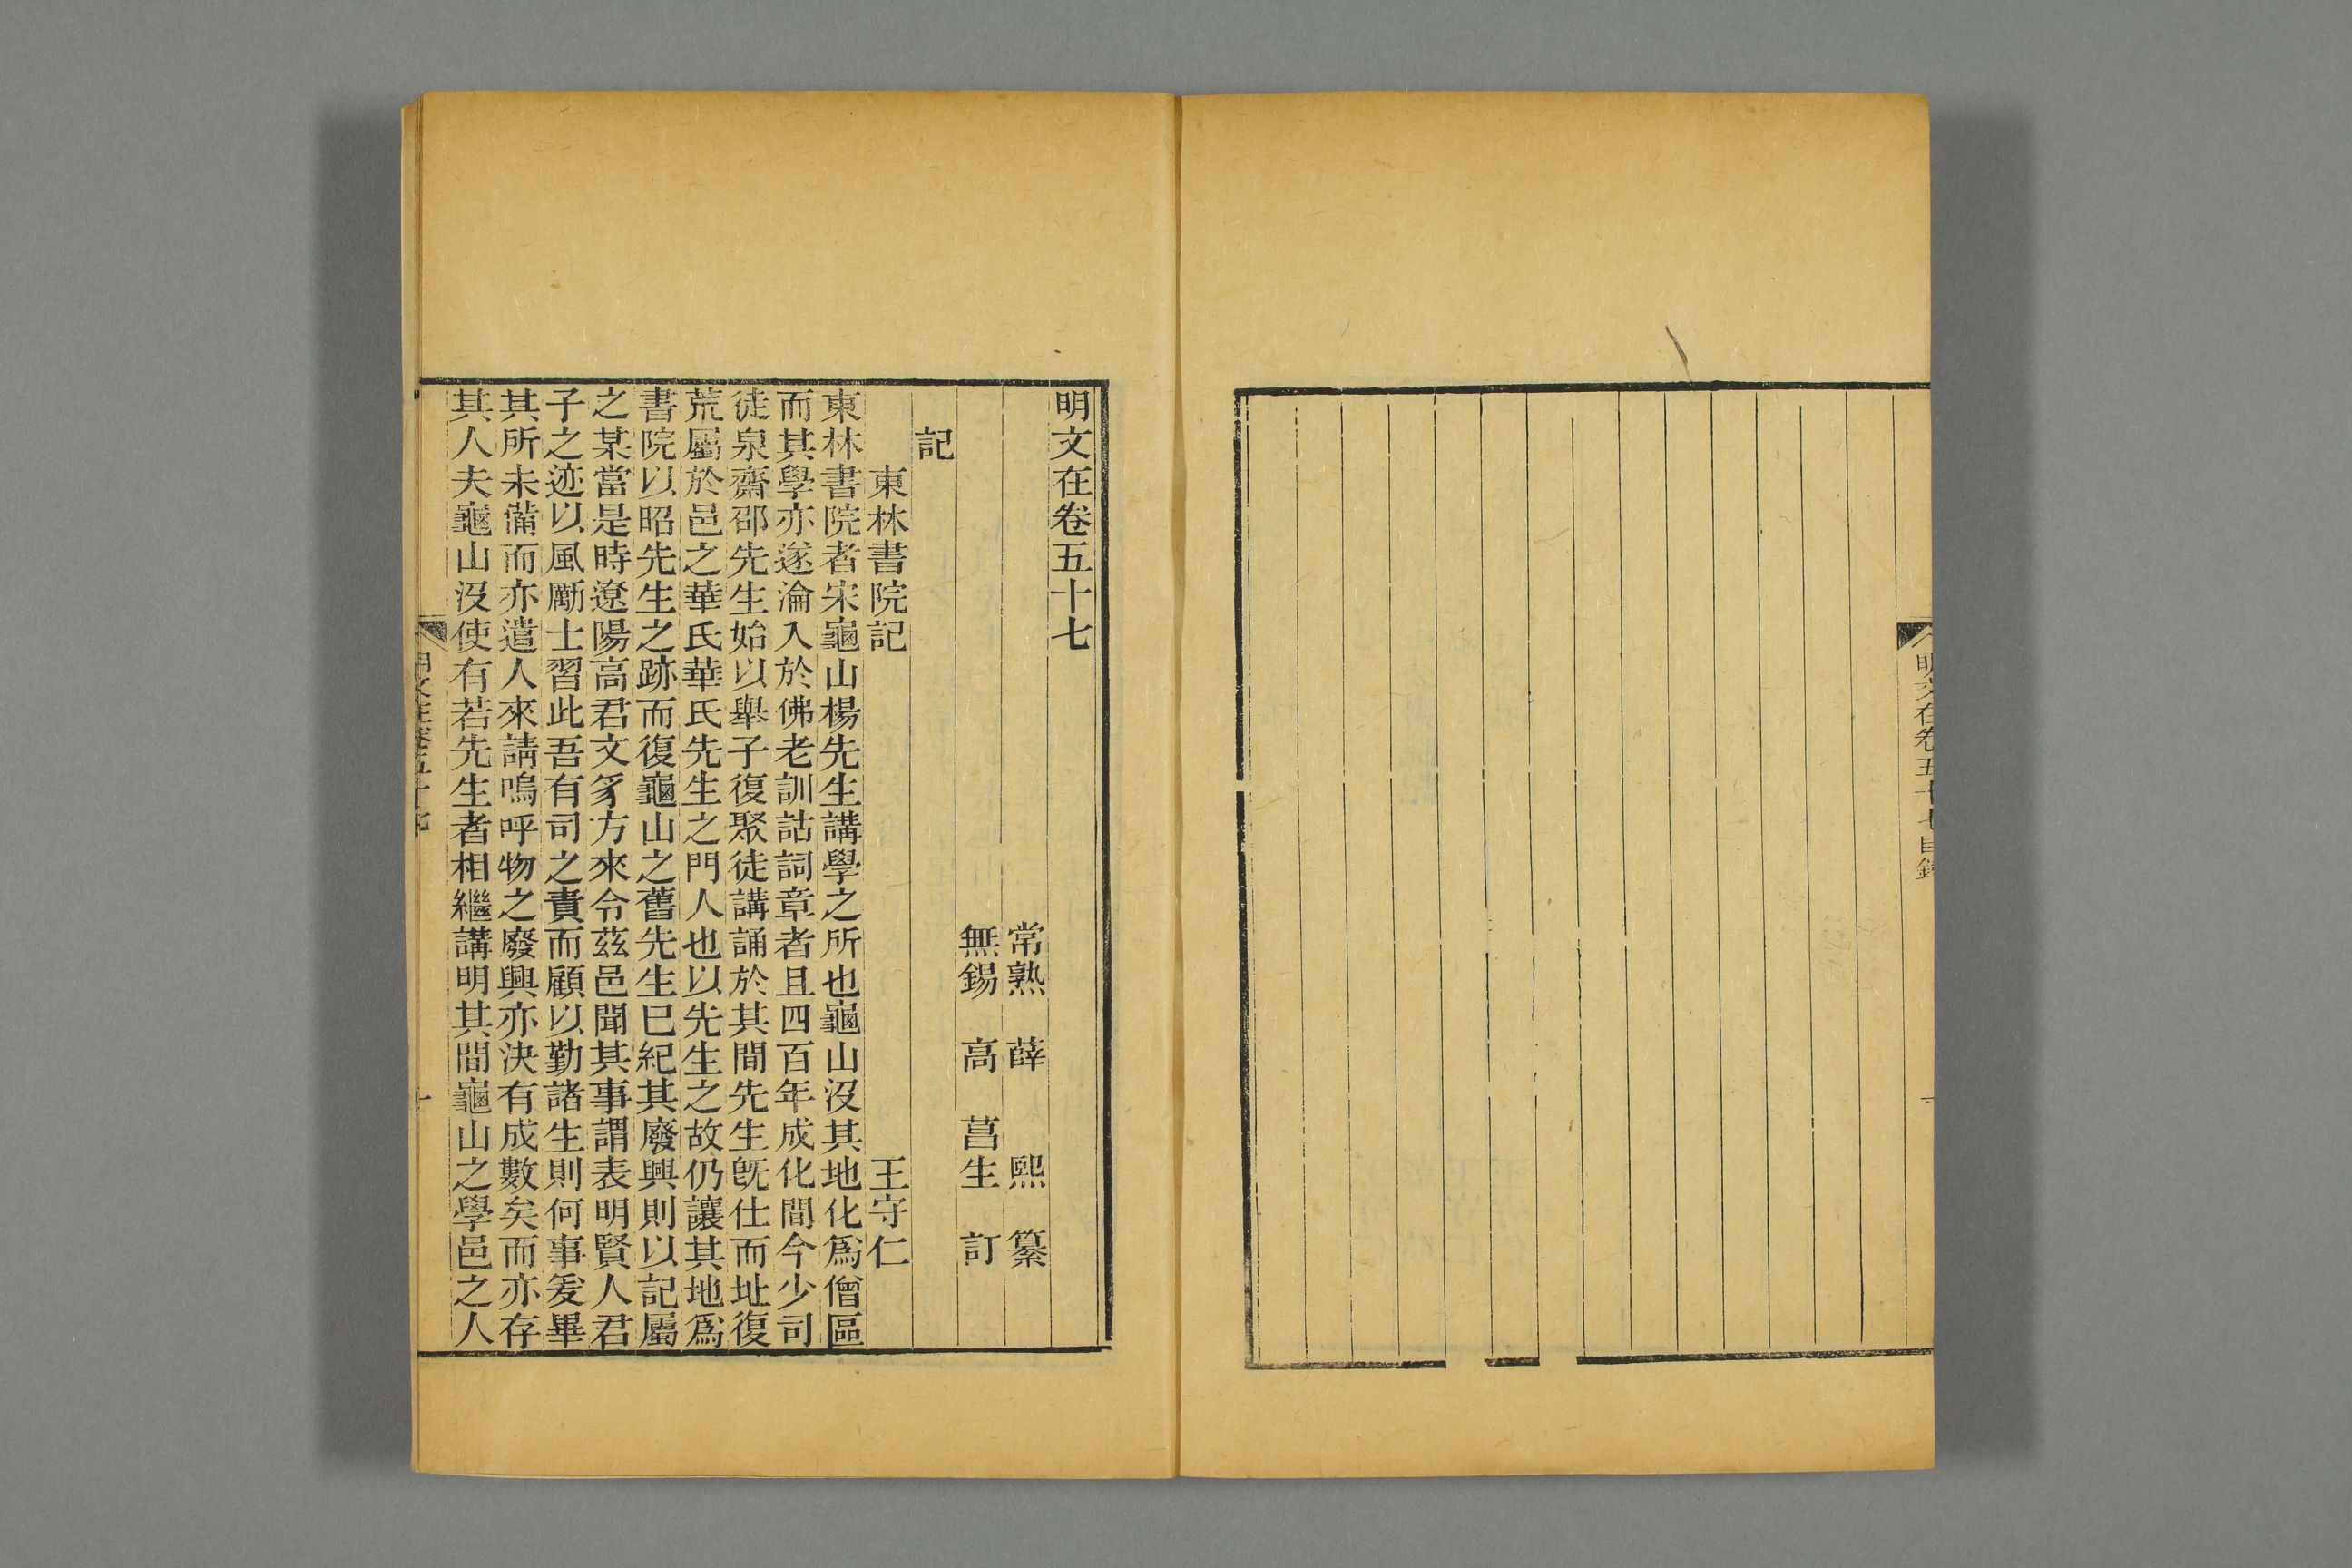 明文在卷五十七目錄
明文在卷五十七
常熟 薛 熙 纂
無錫 高 菖生 訂
記
東林書院記 王守仁
東林書院者宋龜山楊先生講學之所也龜山沒其地化爲僧區
而其學亦遂淪入於佛老訓詁詞章者且四百年成化間今少司
徒泉齋邵先生始以舉子復聚徒講誦於其間先生旣仕而址復
荒屬於邑之華氏華氏先生之門人也以先生之故仍讓其地爲
書院以昭先生之跡而復龜山之舊先生已紀其廢興則以記屬
之某當是時遼陽高君文豸方來令茲邑聞其事謂表明賢人君
子之迹以風勵士習此吾有司之責而顧以勤諸生則何事爰畢
其所未備而亦遣人來請嗚呼物之廢興亦決有成數矣而亦存
其人夫龜山沒使有若先生者相繼講明其間龜山之學邑之人
明文在卷五十七